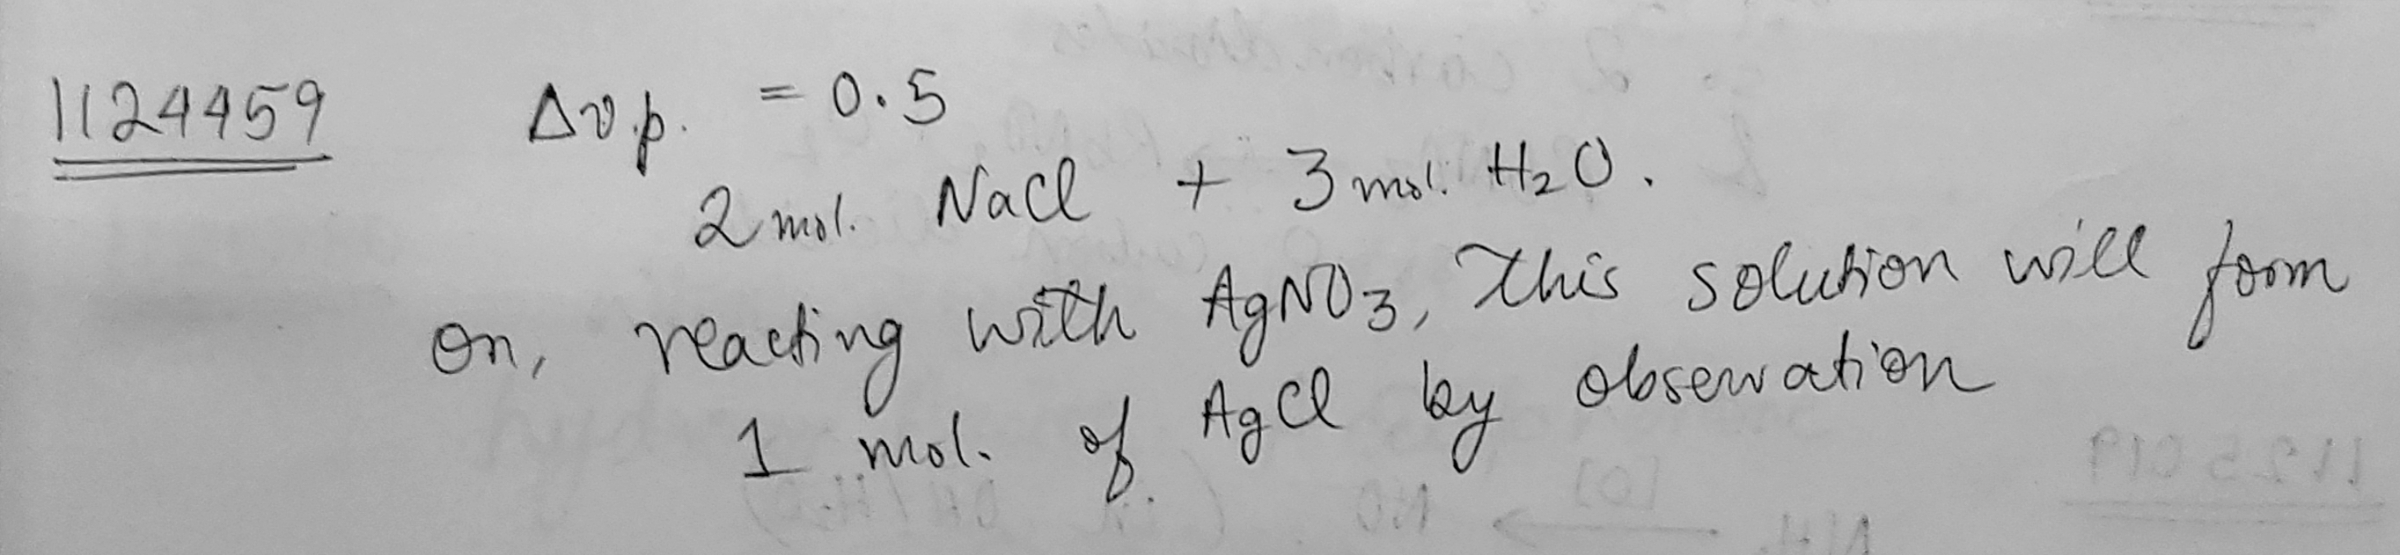 1124459 Δv.p. = 0.5
2 mol. NaCl + 3 mol. H₂O.
on, reacting with AgNO₃, This solution will form
1 mol. of AgCl by observation